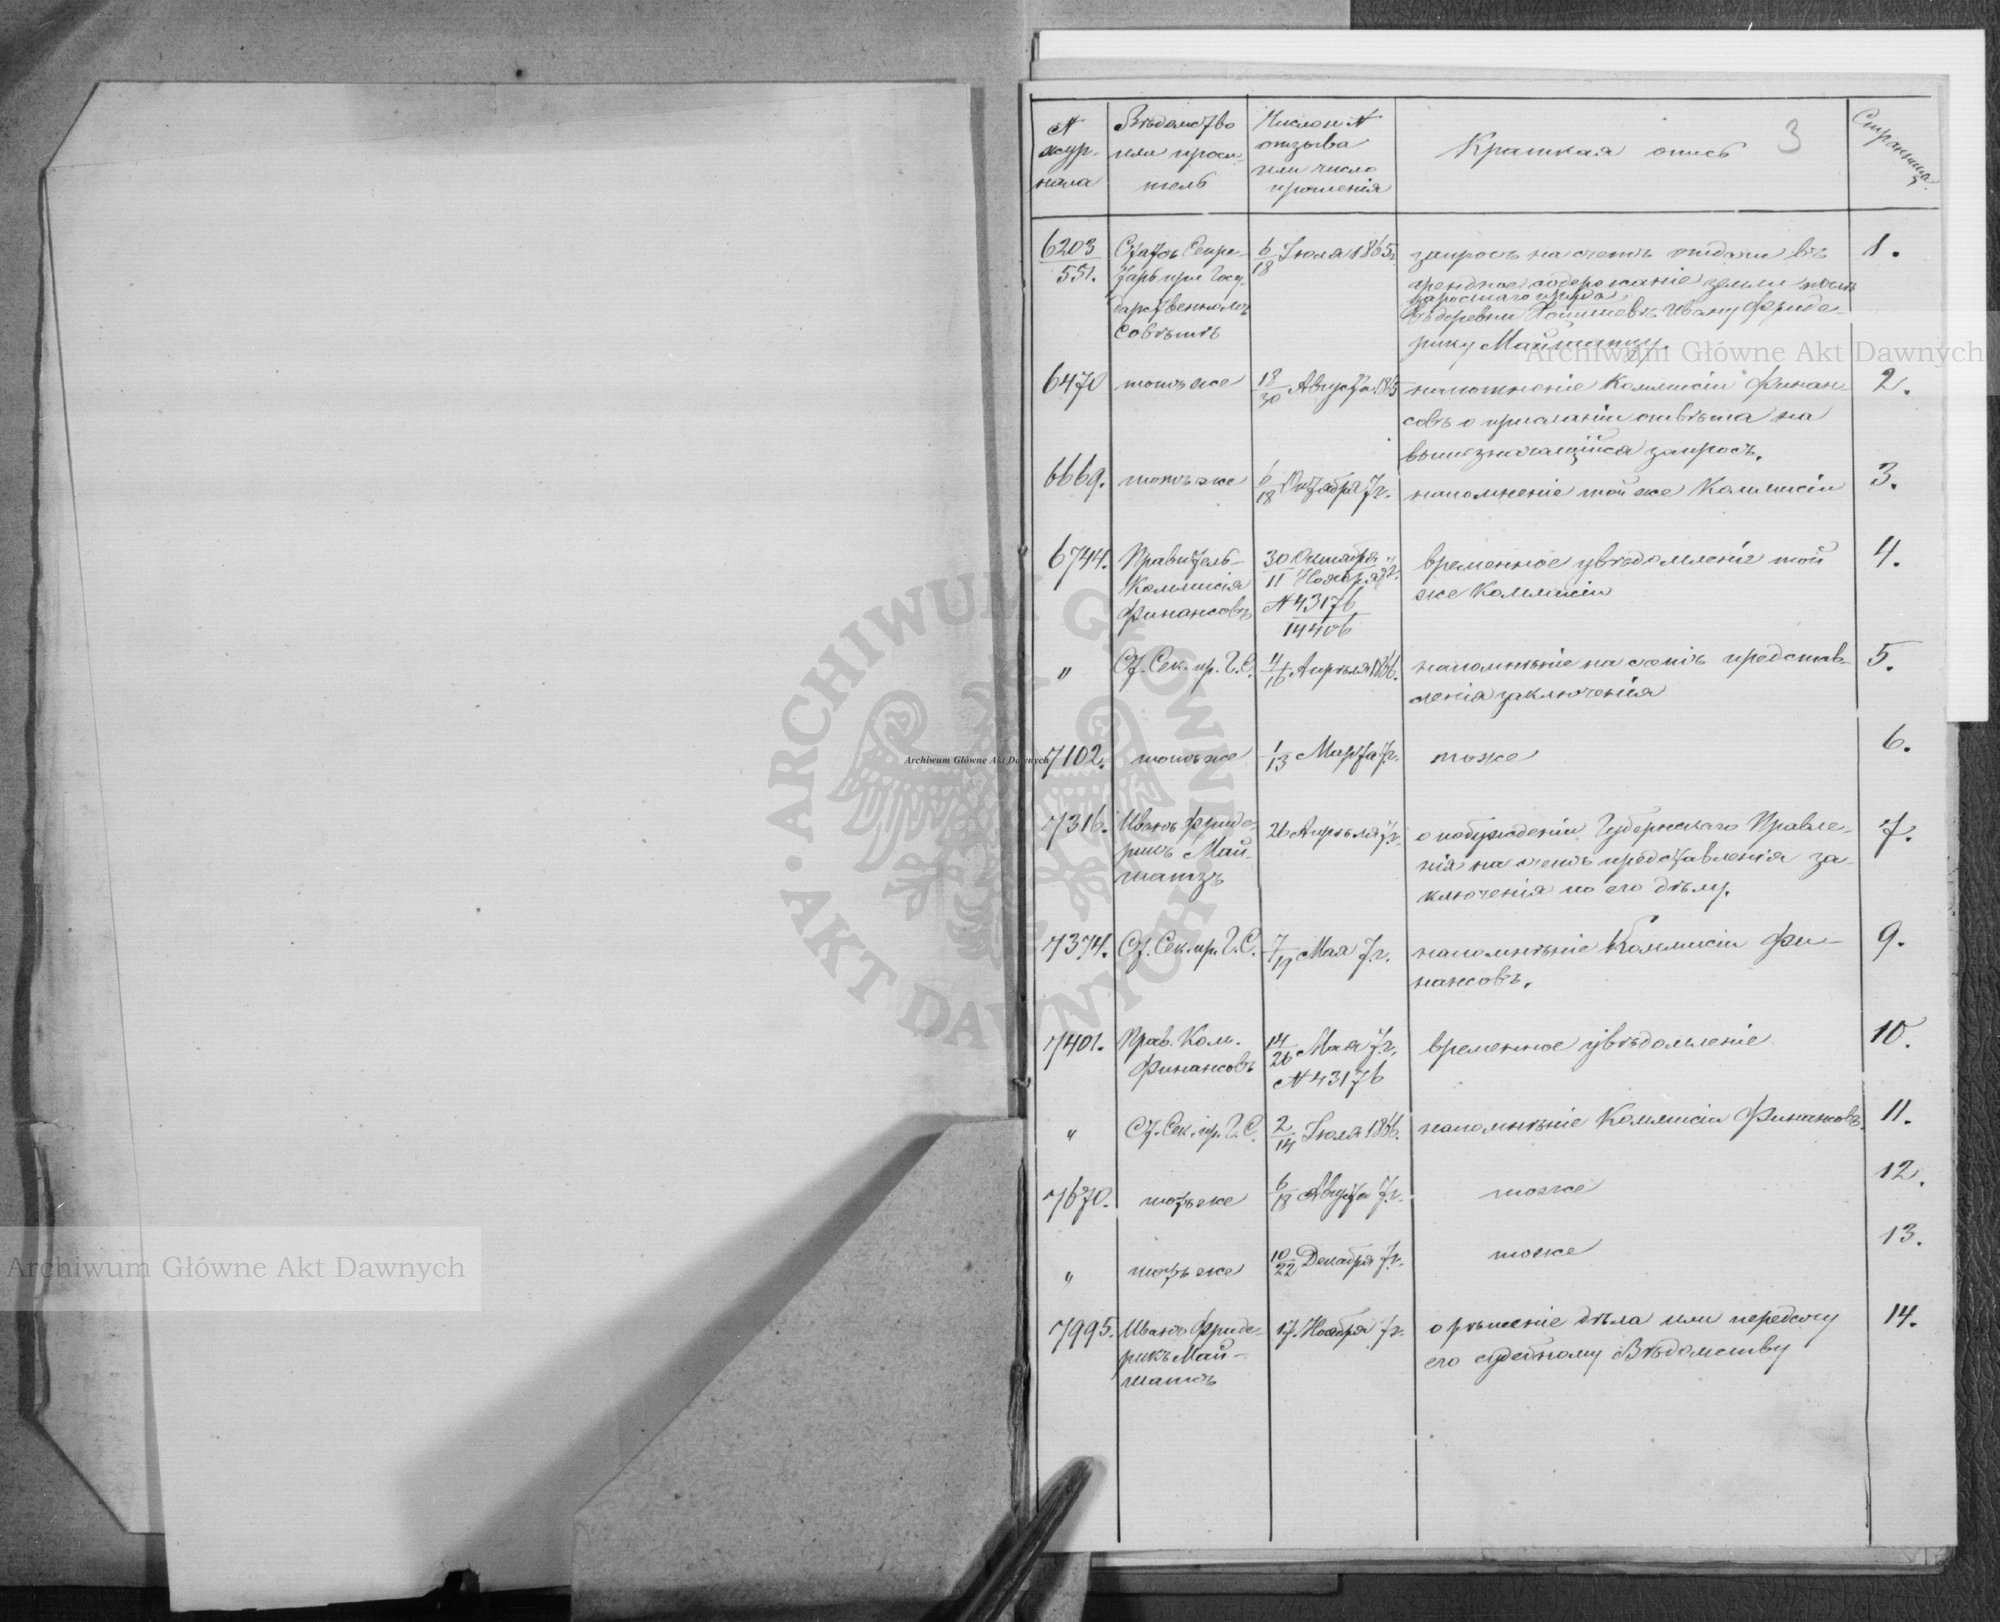 3
N журнала
Вѣдомство или проситель
Число и N отзыва или число прошенія
Краткая опись
Страница
6203/551.
Статсъ Секре-
тарь при Госу-
дарственномъ
Совѣтѣ
6/18 Іюля 1865 г.
запросъ на счетъ отдачи въ
арендное содержаніе земли
въ деревни Ивану Фриде-
рику Маймацу.
1.
6470
тотъ же
18/30 Августа 1865
напомненіе Коммисіи Финан-
совъ о присланіи отвѣта на
вышезначащійся запросъ.
2.
6669.
тотъ же
6/18 Октября т.г.
напомненіе той же Коммисіи
3.
6744.
Правитель-
Коммисія
Финансовъ
30 Октября
11 Ноября т.г.
N 43176/14406
временное увѣдомленіе той
же Коммисіи
4.
"
Ст. Сек. пр. Г. С.
4/16 Апрѣля 1866.
напомнѣніе на счетъ представ-
ленія заключенія
5.
7102.
тотъ же
1/13 Марта т.г.
тоже
6.
7316.
Иванъ Фриде-
рикъ Май-
матзъ
26 Апрѣля т.г.
о побужденіи Губернскаго Правле-
нія на счетъ представленія за-
ключенія по его дѣлу.
7.
7374.
Ст. Сек. пр. Г. С.
7/19 Мая т.г.
напомнѣніе Коммисіи Фи-
нансовъ.
9.
7401.
Прав. Ком.
Финансовъ
14/26 Мая т.г.
N 43176
временное увѣдомленіе
10.
"
Ст. Сек. пр. Г. С.
2/14 Іюля 1866.
напомнѣніе Коммисіи Финансовъ.
11.
7670.
тотъ же
6/18 Августа т.г.
тоже
12.
"
тотъ же
10/22 Декабря т.г.
тоже
13.
7995.
Иванъ Фриде-
рикъ Май-
матъ
17 Ноября т.г.
о рѣшеніе дѣла или передачу
его судебному Вѣдомству
14.
Archiwum Główne Akt Dawnych
Archiwum Główne Akt Dawnych
Archiwum Główne Akt Dawnych
ARCHIWUM GŁÓWNE AKT DAWNYCH